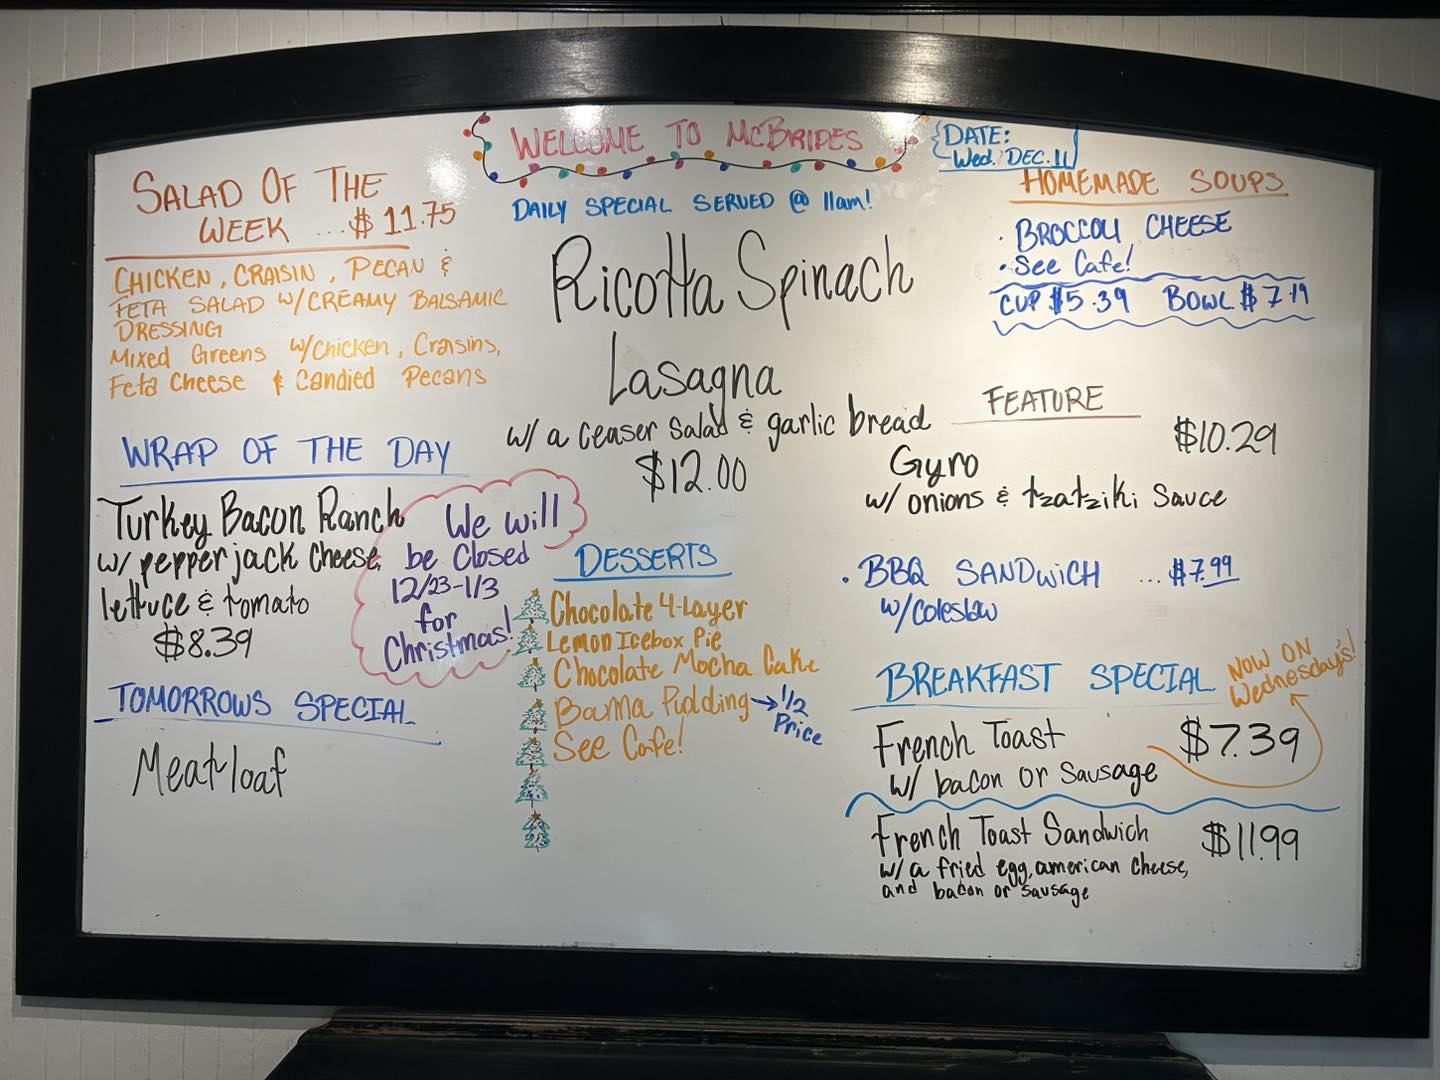 WELCOME TO McBRIDES
DATE:
Wed. DEC. 11
DAILY SPECIAL SERVED @ 11am!
Ricotta Spinach
Lasagna
w/ a ceaser salad & garlic bread
$12.00
SALAD OF THE
WEEK ...$ 11.75
CHICKEN, CRAISIN, PECAN &
FETA SALAD W/CREAMY BALSAMIC
DRESSING
Mixed Greens w/Chicken, Craisins,
Feta Cheese & Candied Pecans
WRAP OF THE DAY
Turkey Bacon Ranch
w/ pepper jack cheese,
lettuce & tomato
$8.39
We will
be Closed
12/23-1/3
for
Christmas!
TOMORROWS SPECIAL
Meatloaf
DESSERTS
Chocolate 4-Layer
Lemon Icebox Pie
Chocolate Mocha Cake
Bama Pudding → 1/2
Price
See Cafe!
HOMEMADE SOUPS
• BROCCOLI CHEESE
• See Cafe!
CUP $5.39 BOWL $7.19
FEATURE
$10.29
Gyro
w/ onions & tzatziki sauce
• BBQ SANDWICH ... $7.99
w/coleslaw
BREAKFAST SPECIAL
NOW ON
Wednesday's!
French Toast $7.39
w/ bacon or sausage
French Toast Sandwich $11.99
w/ a fried egg, american cheese,
and bacon or sausage